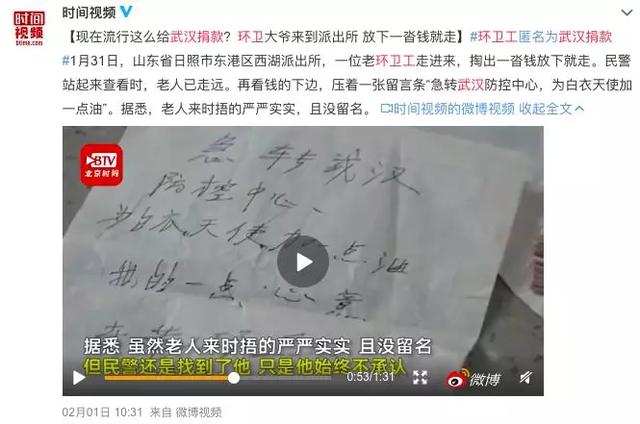 时间
视频
btime.com
时间视频
【现在流行这么给武汉捐款？环卫大爷来到派出所 放下一沓钱就走】#环卫工匿名为武汉捐款
#1月31日，山东省日照市东港区西湖派出所，一位老环卫工走进来，掏出一沓钱放下就走。民警
站起来查看时，老人已走远。再看钱的下边，压着一张留言条“急转武汉防控中心，为白衣天使加
一点油”。据悉，老人来时捂的严严实实，且没留名。 时间视频的微博视频 收起全文
BTV
北京时间
急 转 武汉
防控中心、
为白衣天使加一点油
我的一点心意
据悉 虽然老人来时捂的严严实实 且没留名
但民警还是找到了他 只是他始终不承认
0:53/1:31
微博
02月01日 10:31 来自 微博视频